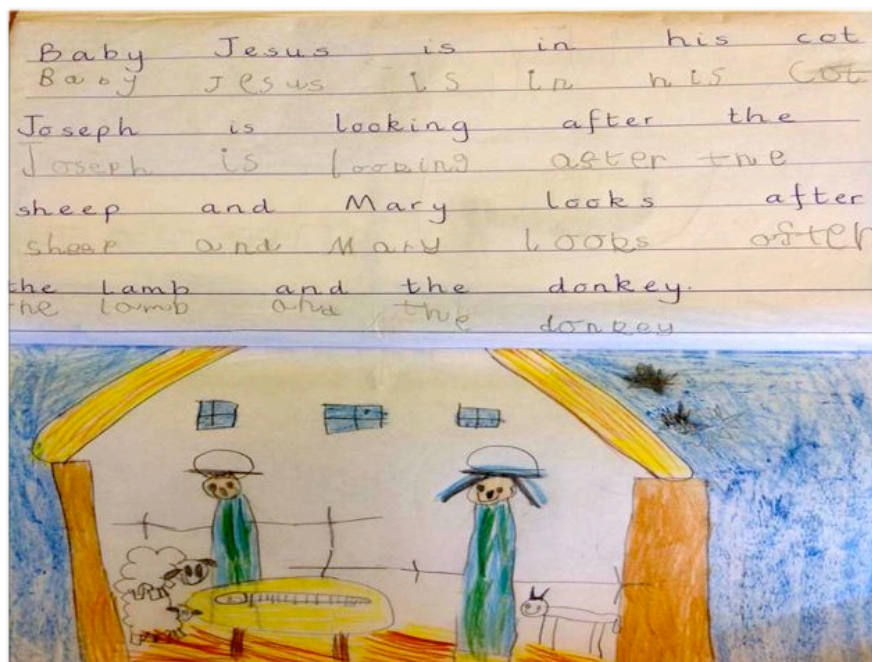 Baby Jesus is in his cot
Baby Jesus is in his cot
Joseph is looking after the
Joseph is looking after the
sheep and Mary looks after
sheep and Mary looks after
the lamb and the donkey.
the lamb and the donkey